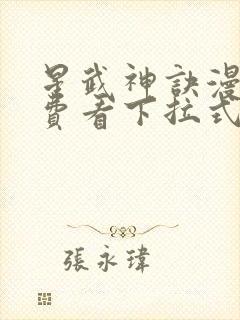 星武神訣漫
費看下拉式
張永瑋